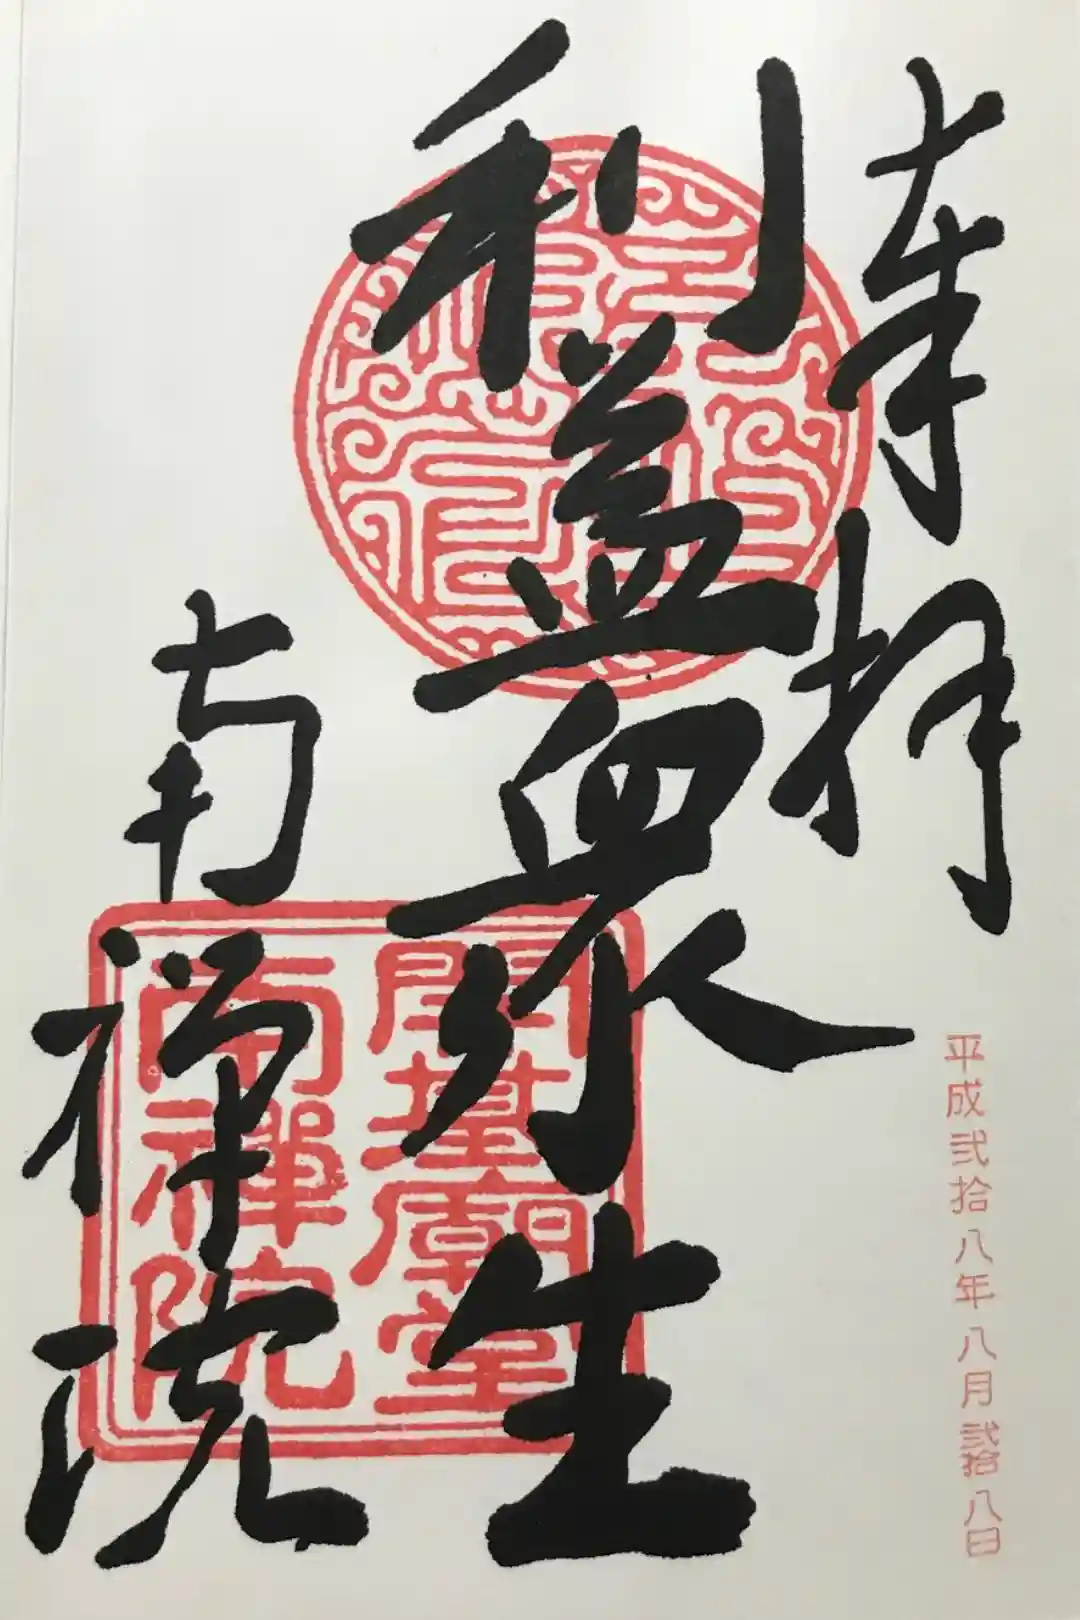 奉拝
平成弐拾八年八月弐拾八日
利益衆生
開基廟堂
南禅院
南禅院